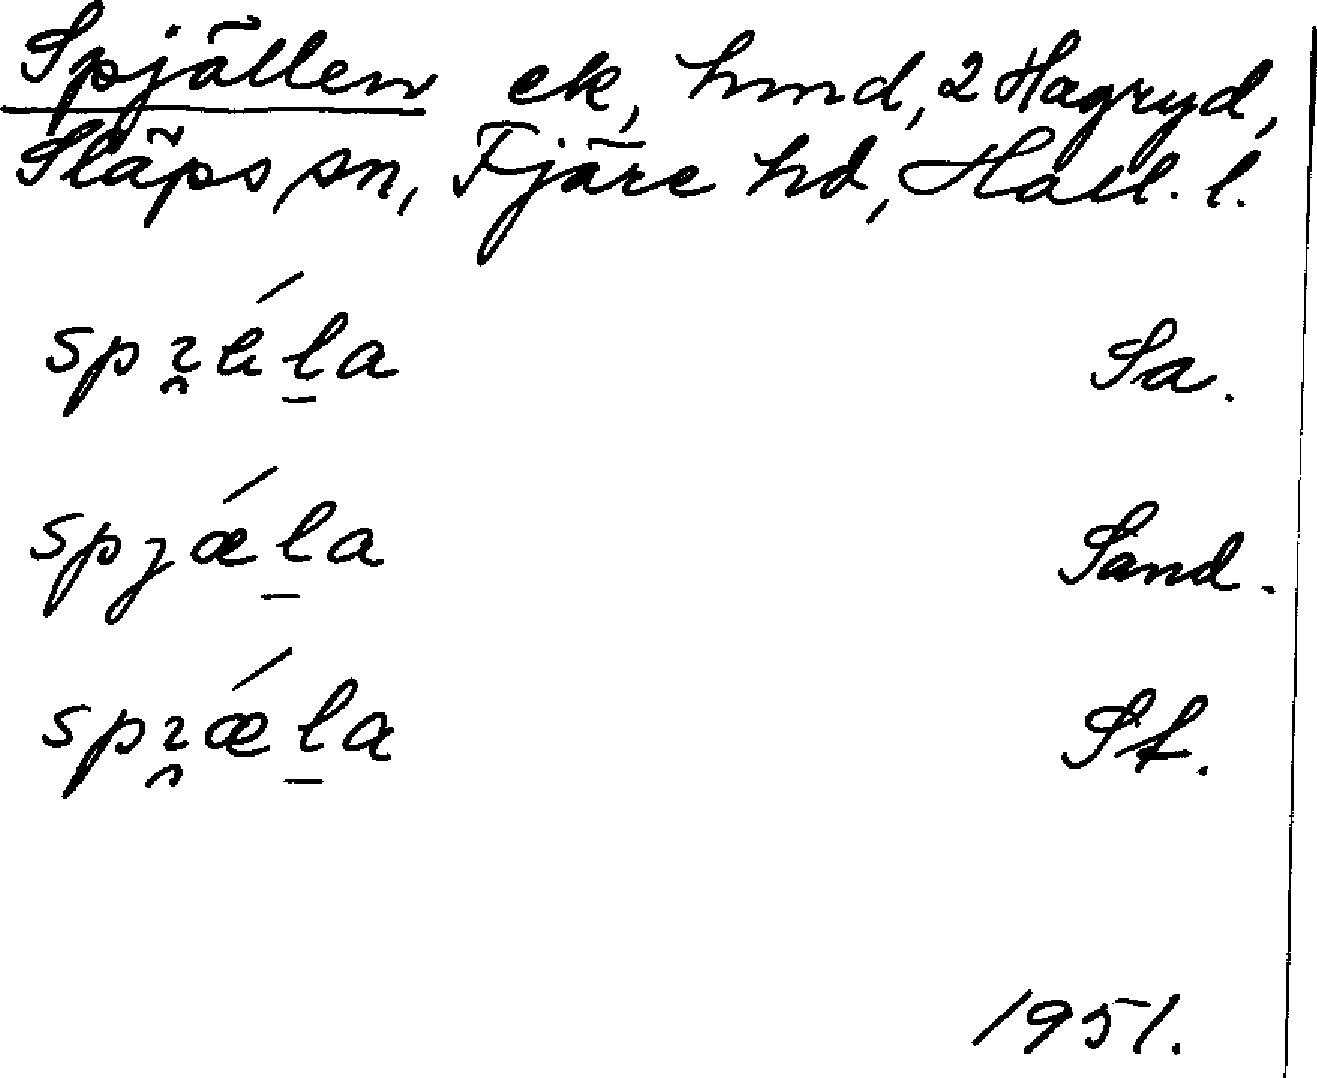 Spjällen ek, hmd, 2 Hagryd,
Släps sn, Fjäre hd, Hall. l.
Sa.
spjǽl̠a Sand.
St.
1951.